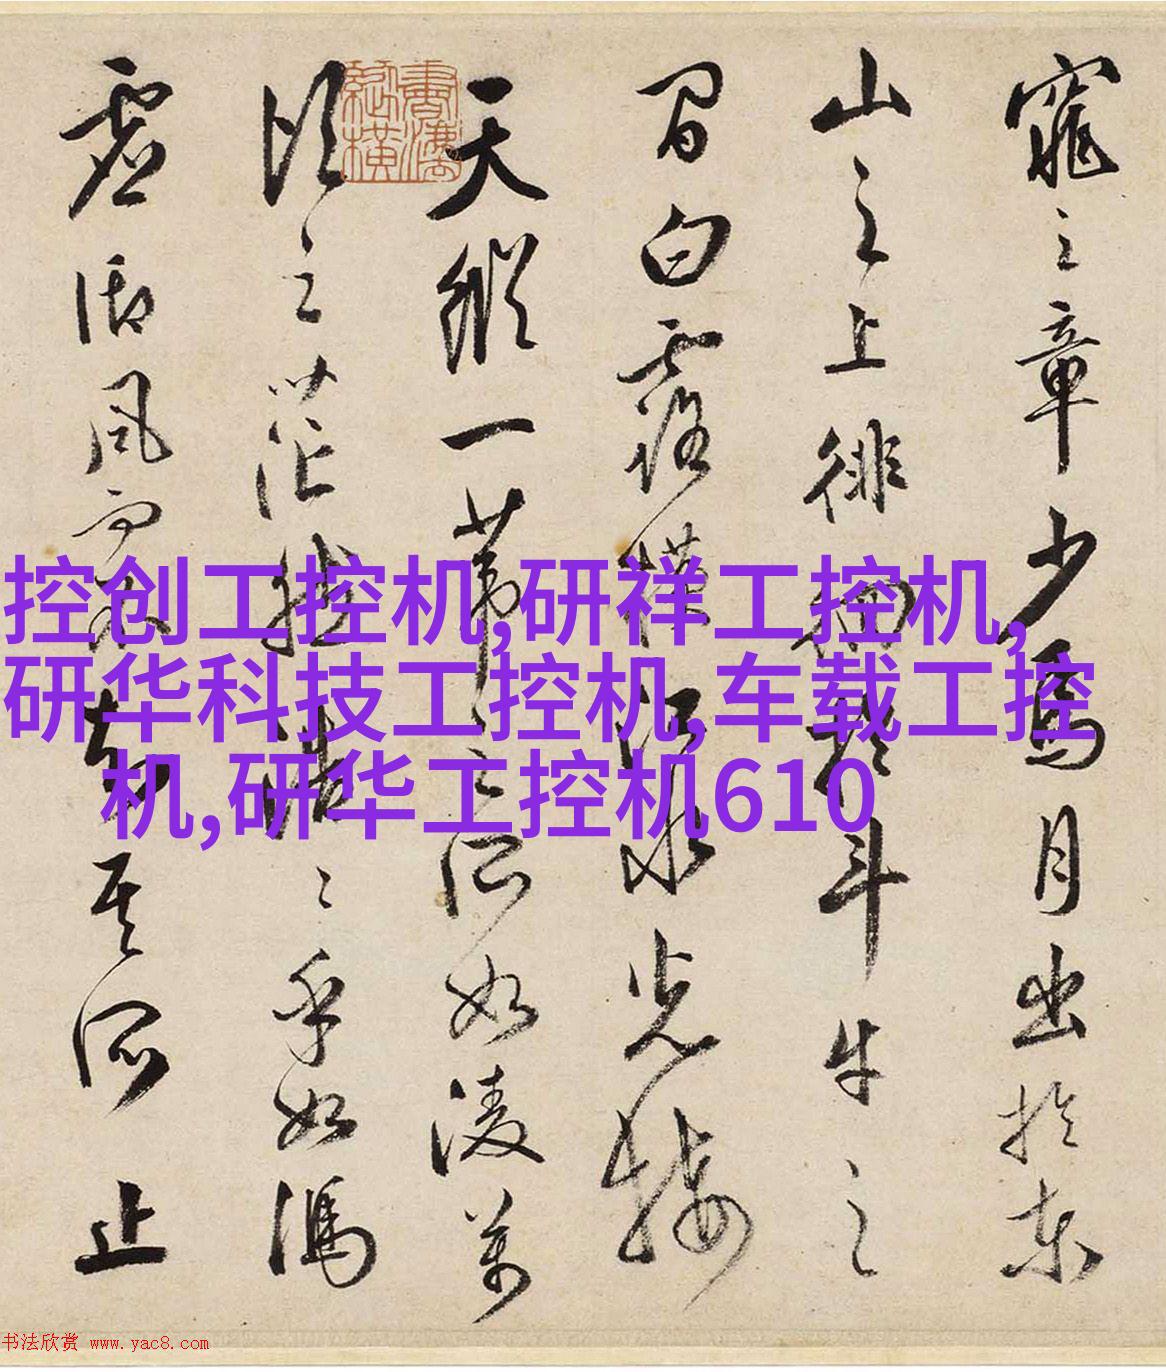 窕之章少焉月出於東
山之上徘徊於斗牛之
間白露橫江水光接
天縱一葦之所如凌萬
頃之茫然浩々乎如馮
虚御風而不知其所止
控创工控机,研祥工控机,
研华科技工控机,车载工控
机,研华工控机610
书法欣赏 www.yac8.com